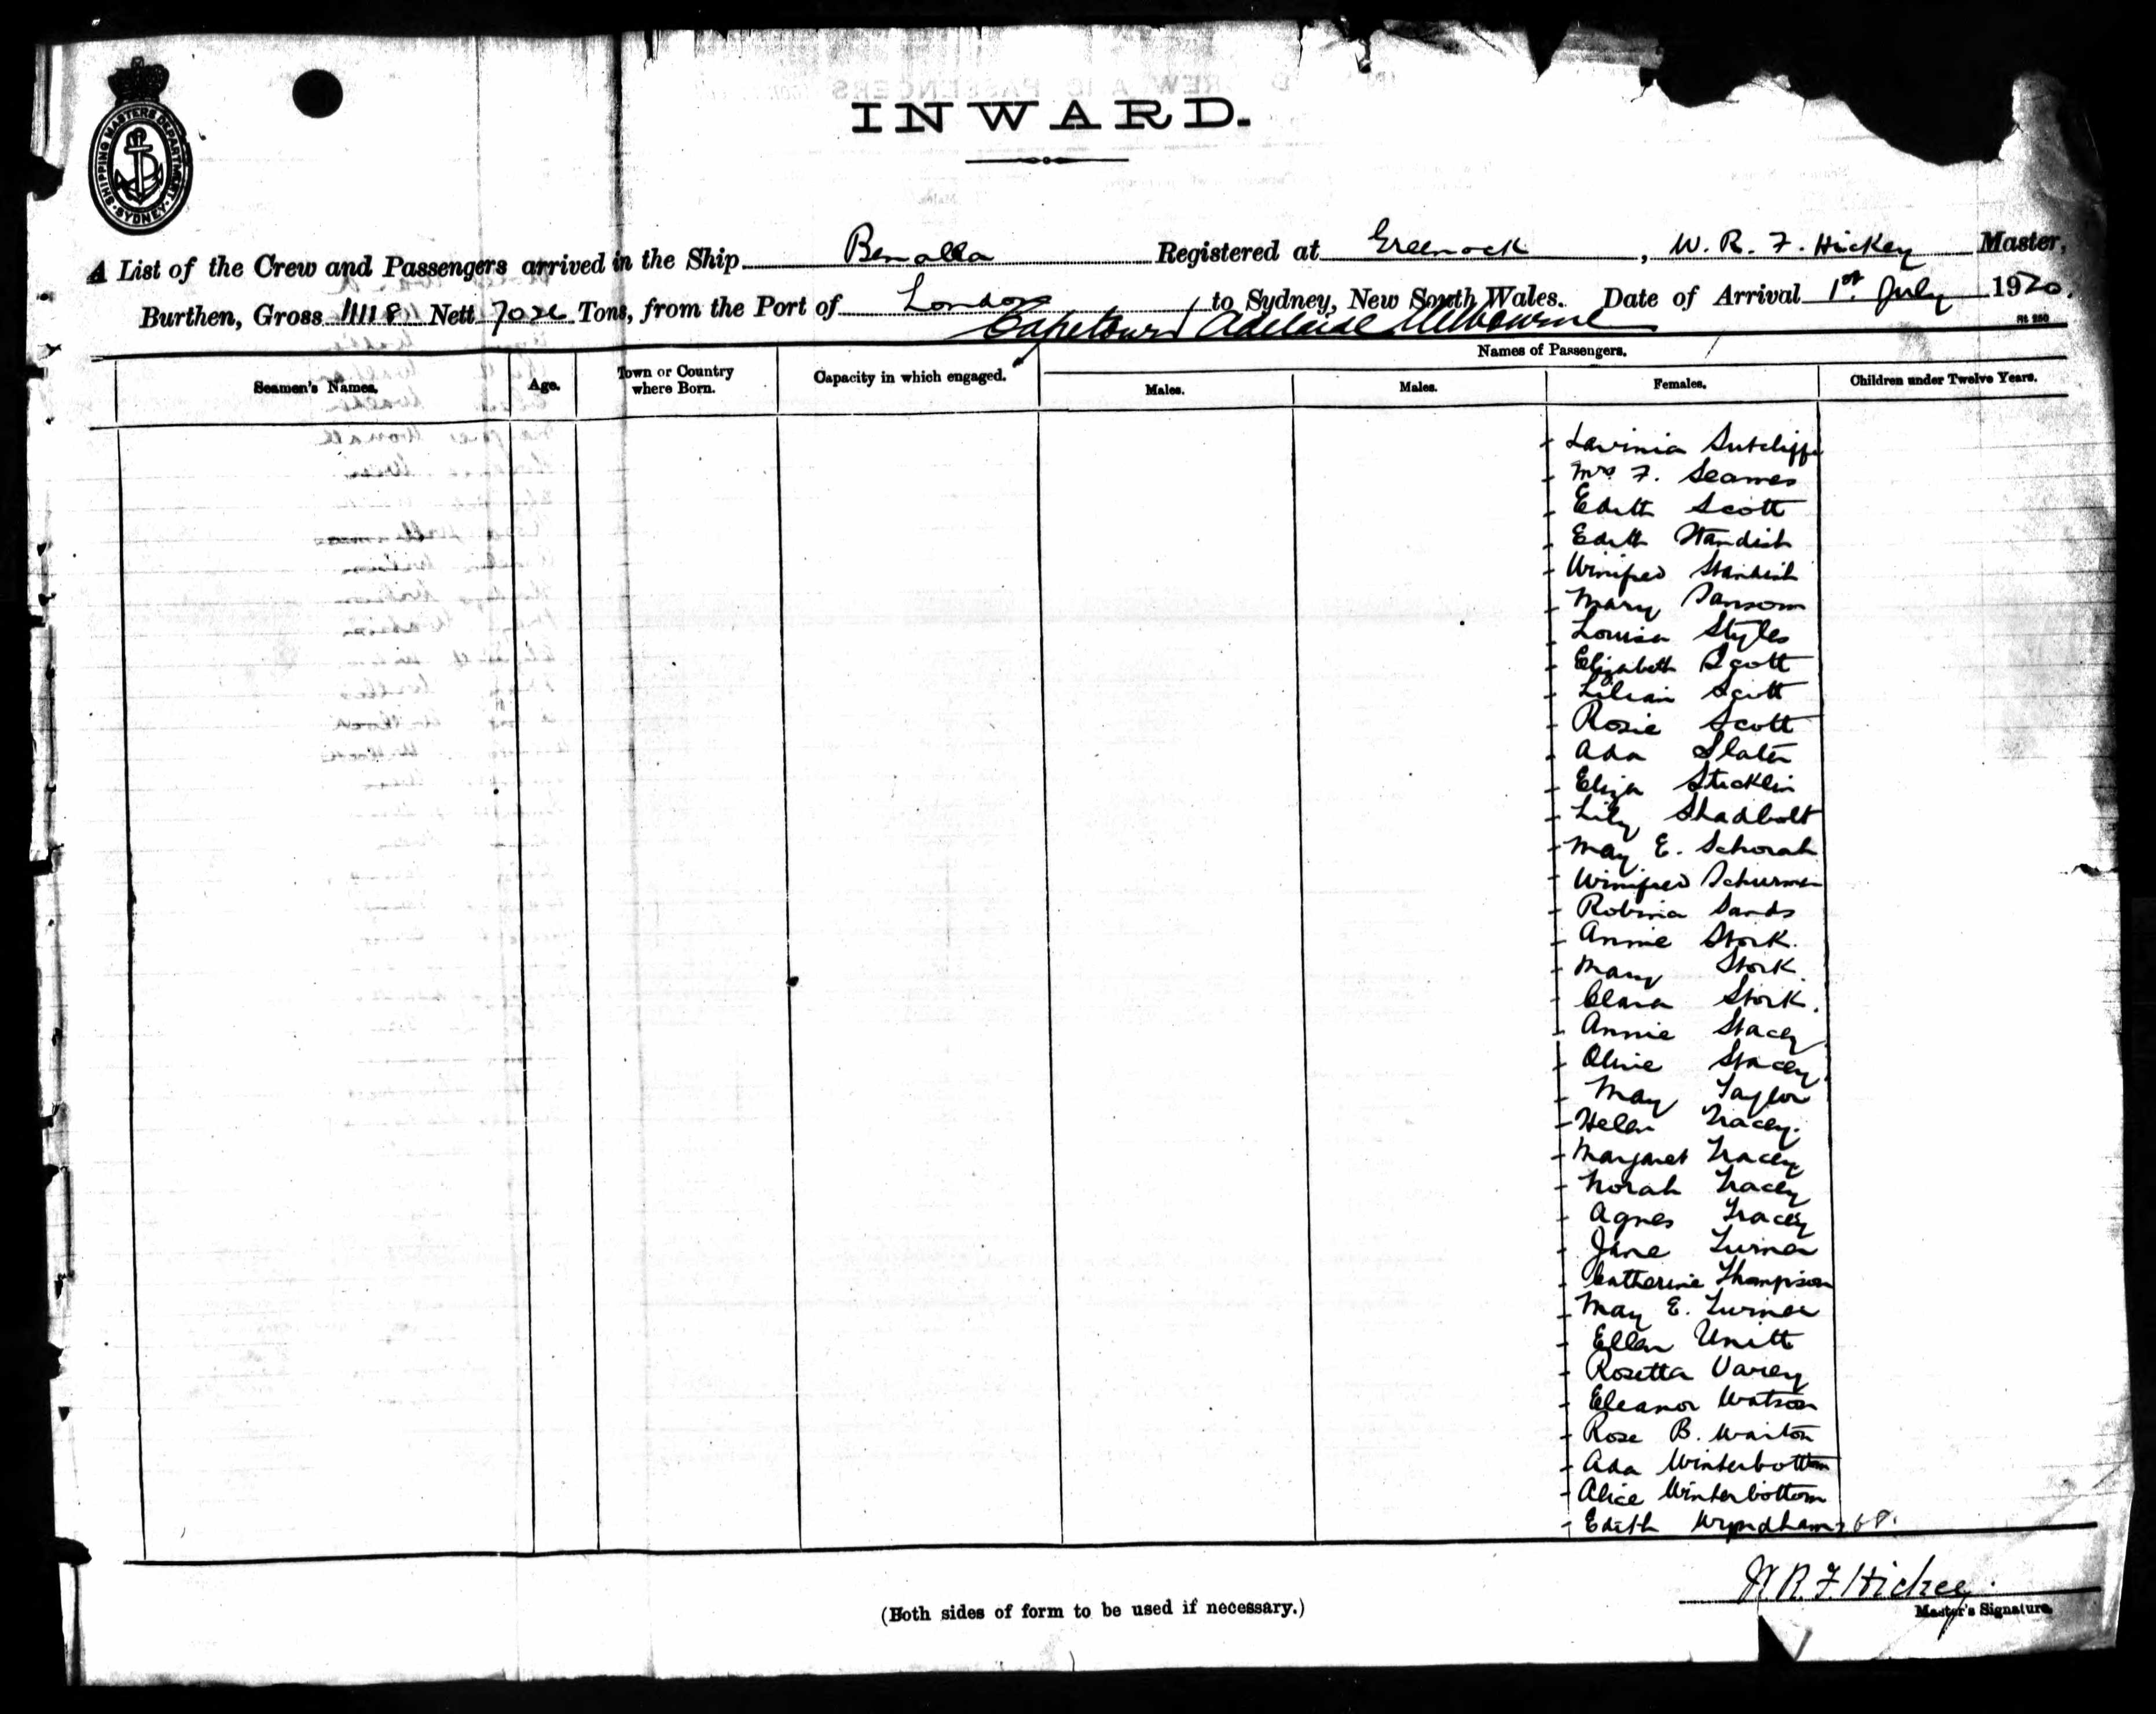 INWARD.
SHIPPING MASTERS DEPARTMENT
SYDNEY
A List of the Crew and Passengers arrived in the Ship Benalla Registered at Greenock, W. R. F. Hickey Master,
Burthen, Gross 11118 Nett Tons, from the Port of London to Sydney, New South Wales. Date of Arrival 1st July 1920.
Capetown Adelaide Melbourne
Names of Passengers.
Seamen's Names. Age. Town or Country where Born. Capacity in which engaged. Males. Males. Females. Children under Twelve Years.
Lavinia Sutcliffe
Mrs F. Seames
Edith Scott
Edith Standish
Winifred Standish
Mary Sansom
Louisa Styles
Elizabeth Scott
Lilian Scott
Rosie Scott
Ada Slater
Eliza Sticklin
Lily Shadbolt
May E. Schorah
Winifred Schurman
Robina Sands
Annie Stork.
Mary Stork.
Clara Stork.
Annie Stacey
Olive Stacey
May Taylor
Helen Tracey.
Margaret Tracey
Norah Tracey
Agnes Tracey
Jane Turner
Catherine Thompson
May E. Turner
Ellen Unitt
Rosetta Varey
Eleanor Watson
Rose B. Warton
Ada Winterbottom
Alice Winterbottom
Edith Wyndham
W R F Hickey.
(Both sides of form to be used if necessary.)
Master's Signature.